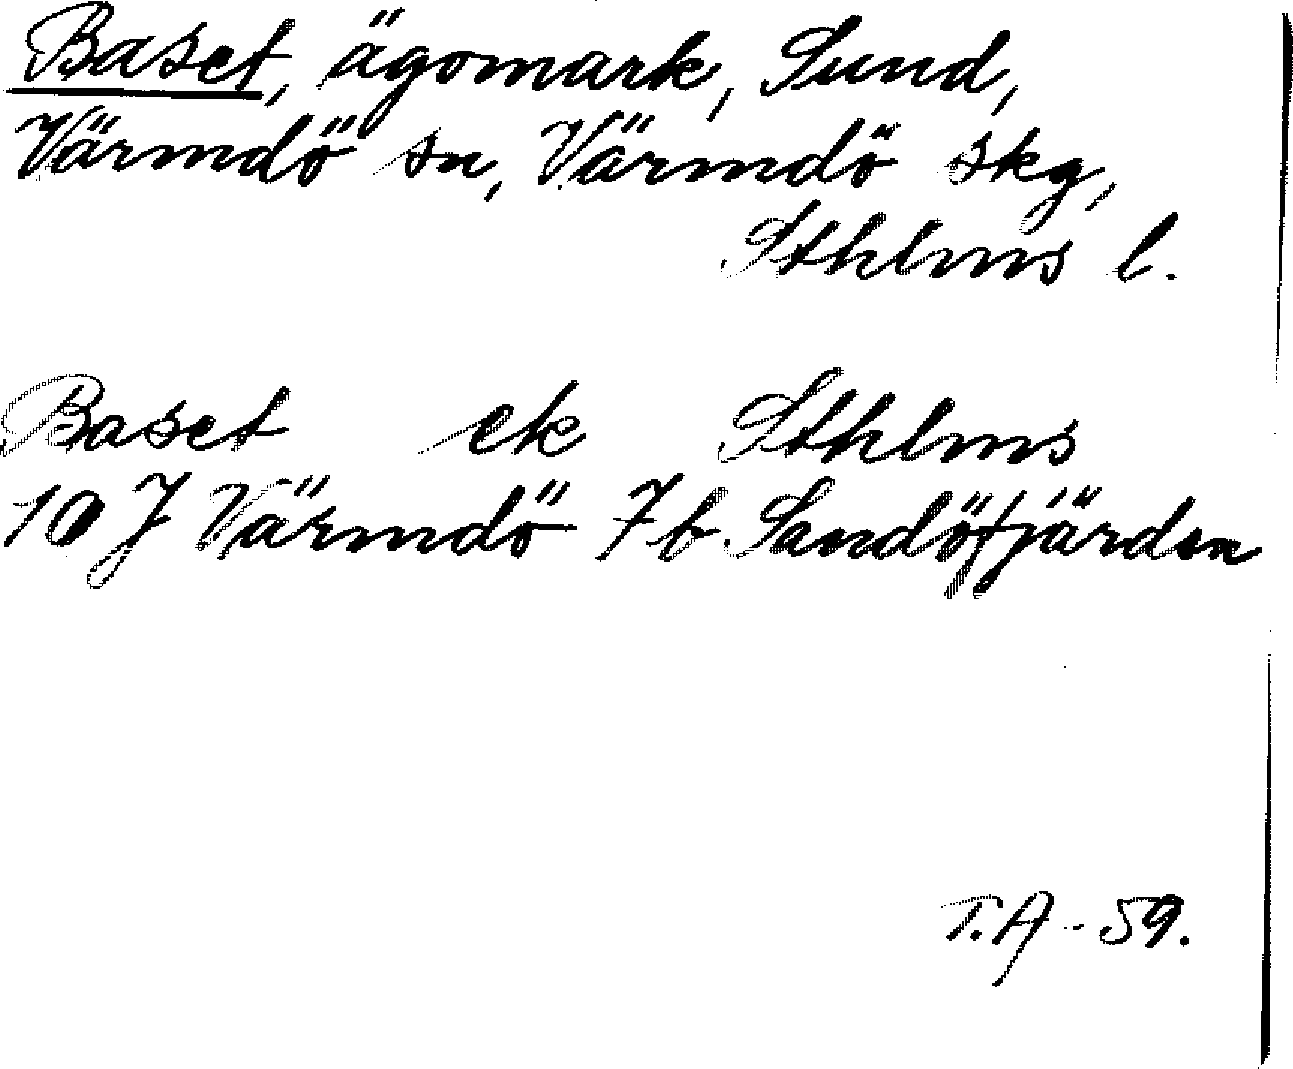 Baset, ägomark, Sund,
Värmdö sn, Värmdö skg,
Sthlms l.
Baset ek Sthlms
10 J Värmdö 7b Sandöfjärden
T.A - 59.